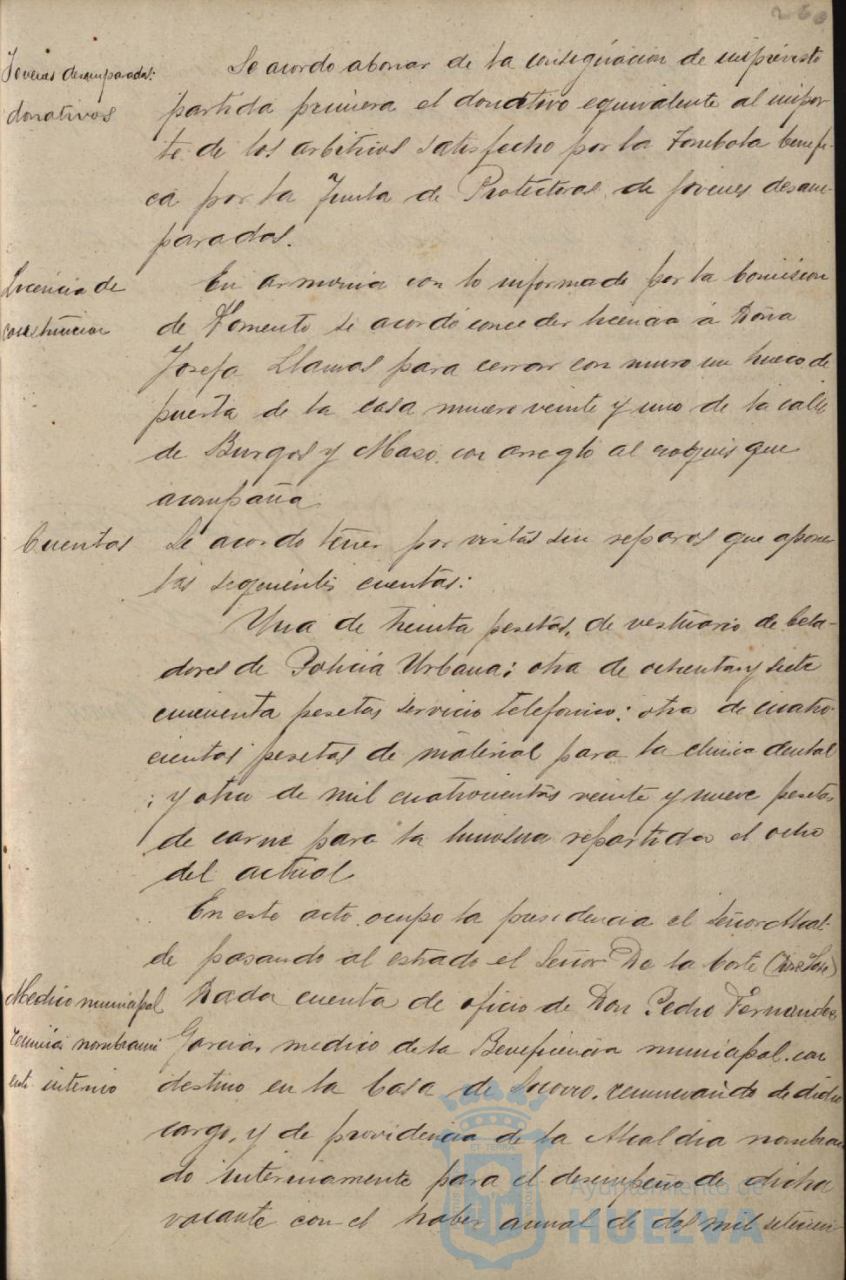 260
Jovenes desamparadas:
donativos
Se acordo abonar de la consignacion de imprevisto
partida primera el donativo equivalente al impor-
te de los arbitrios satisfecho por la Tombola benefi-
ca por la Junta de Protectoras de jovenes desam-
paradas.
Licencia de
construccion
En armonia con lo informado por la Comision
de Fomento se acordó conceder licencia á Doña
Josefa Llamas para cerrar con muro un hueco de
puerta de la casa numero veinte y uno de la calle
de Burgos y Mazo con arreglo al croquis que
acompaña
Cuentas
Se acordo tener por vistas sin reparos que oponer
las seguientes cuentas:
Una de treinta pesetas, de vestuario de cela-
dores de Policia Urbana; otra de ochenta y siete
cincuenta pesetas servicio telefonico; otra de cuatro-
cientas pesetas de material para la clinica dental
; y otra de mil cuatrocientas veinte y nueve pesetas
de carne para la limosna repartida el ocho
del actual
En este acto ocupo la presidencia el Señor Alcal-
de pasando al estrado el Señor De la Corte (Don José)
Medico municipal
renuncia nombrami
ento interino
Dada cuenta de oficio de Don Pedro Fernandez
Garcia, medico de la Beneficencia municipal con
destino en la Casa de Socorro, renunciando de dicho
cargo, y de providencia de la Alcaldia nombran
do interinamente para el desempeño de dicha
vacante con el haber anual de dos mil setecien
Ayuntamiento de
HUELVA